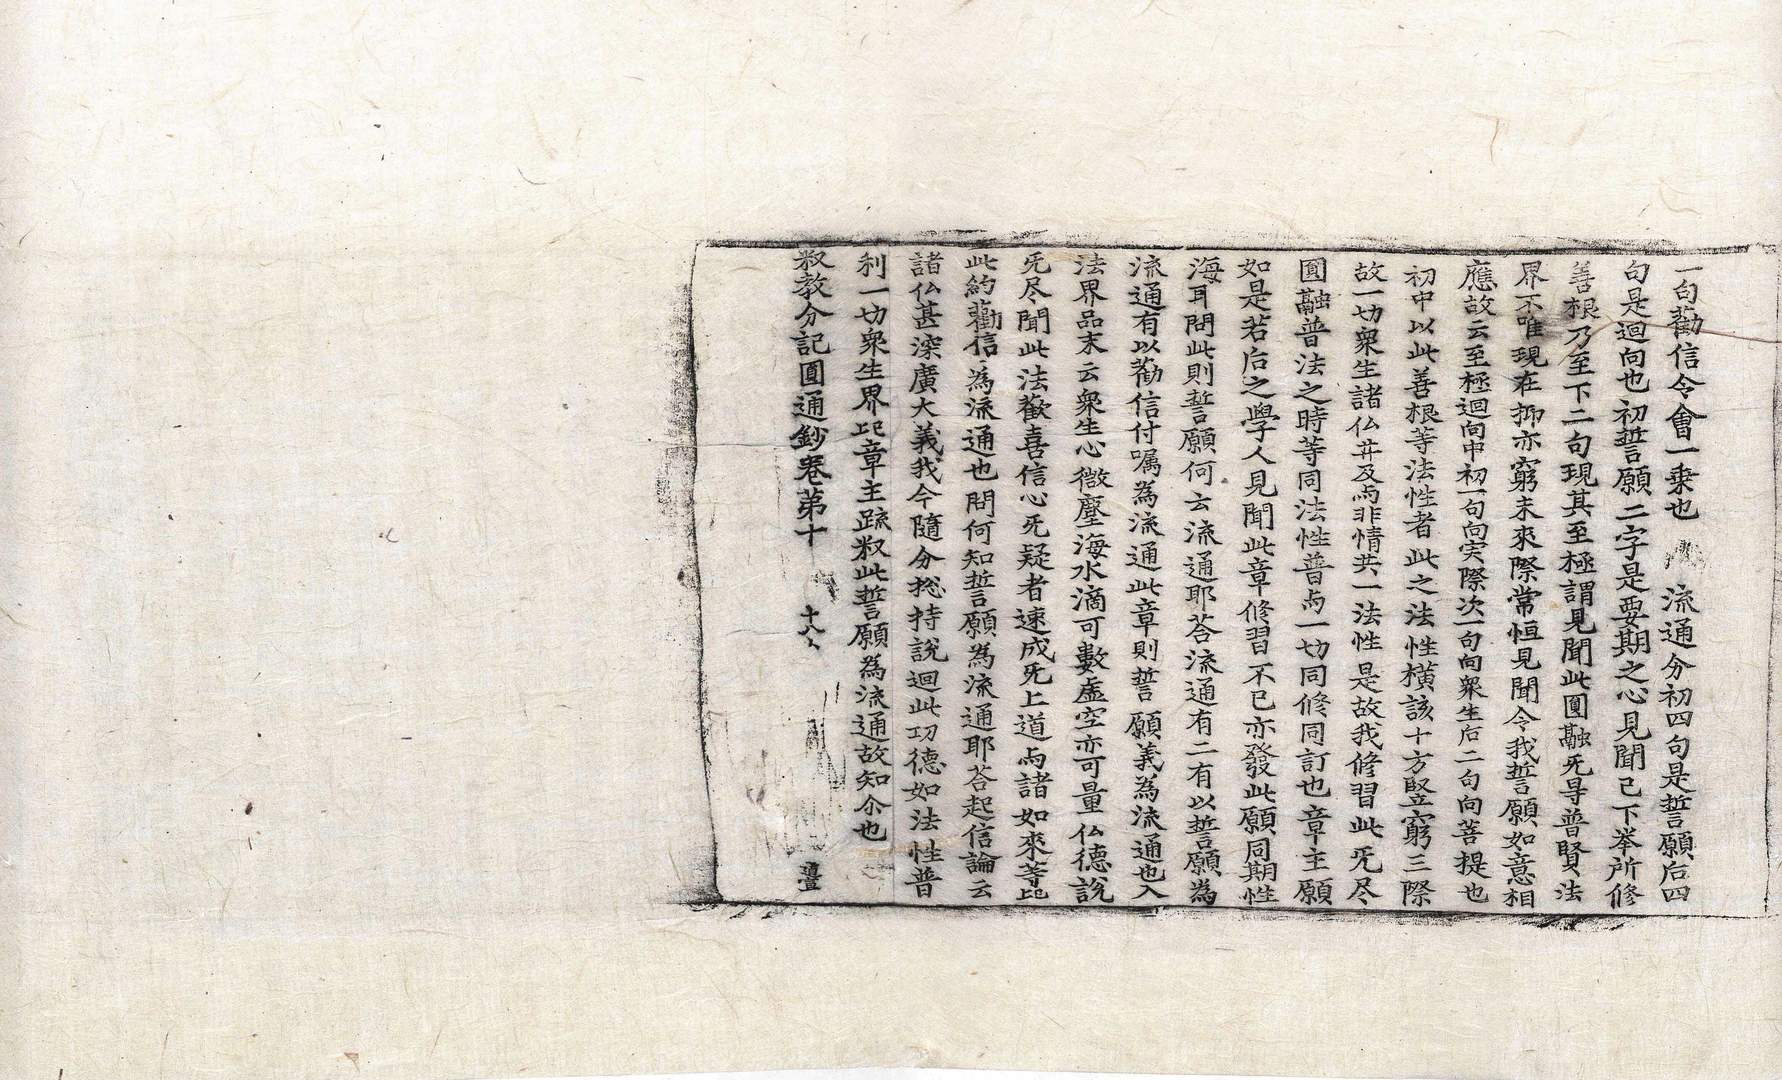 一句勸信令會一乗也 流通分初四句是誓願后四
句是迴向也初誓願二字是要期之心見聞已下举所修
善根乃至下二句現其至極謂見聞此圎融旡导普賢法
界不唯現在抑亦窮未來際常恒見聞令我誓願如意相
應故云至極迴向中初一句向実際次一句向衆生后二句向菩提也
初中以此善根等法性者此之法性横該十方竪窮三際
故一切衆生諸仏井及与非情共一法性是故我修習此旡尽
圎融普法之時等同法性普与一切同修同訂也章主願
如是若后之學人見聞此章修習不已亦發此願同期性
海耳問此則誓願何云流通耶荅流通有二有以誓願為
流通有以勸信付嘱為流通此章則誓願義為流通也入
法界品末云衆生心微塵海水滴可數虚空亦可量仏德說
旡尽聞此法歡喜信心旡疑者速成旡上道与諸如來等此
此約勸信為流通也問何知誓願為流通耶荅起信論云
諸仏甚深廣大義我今隨分捴持說迴此功德如法性普
利一切衆生界此章主疏釈此誓願為流通故知尒也
釈教分記圎通鈔卷苐十 十八